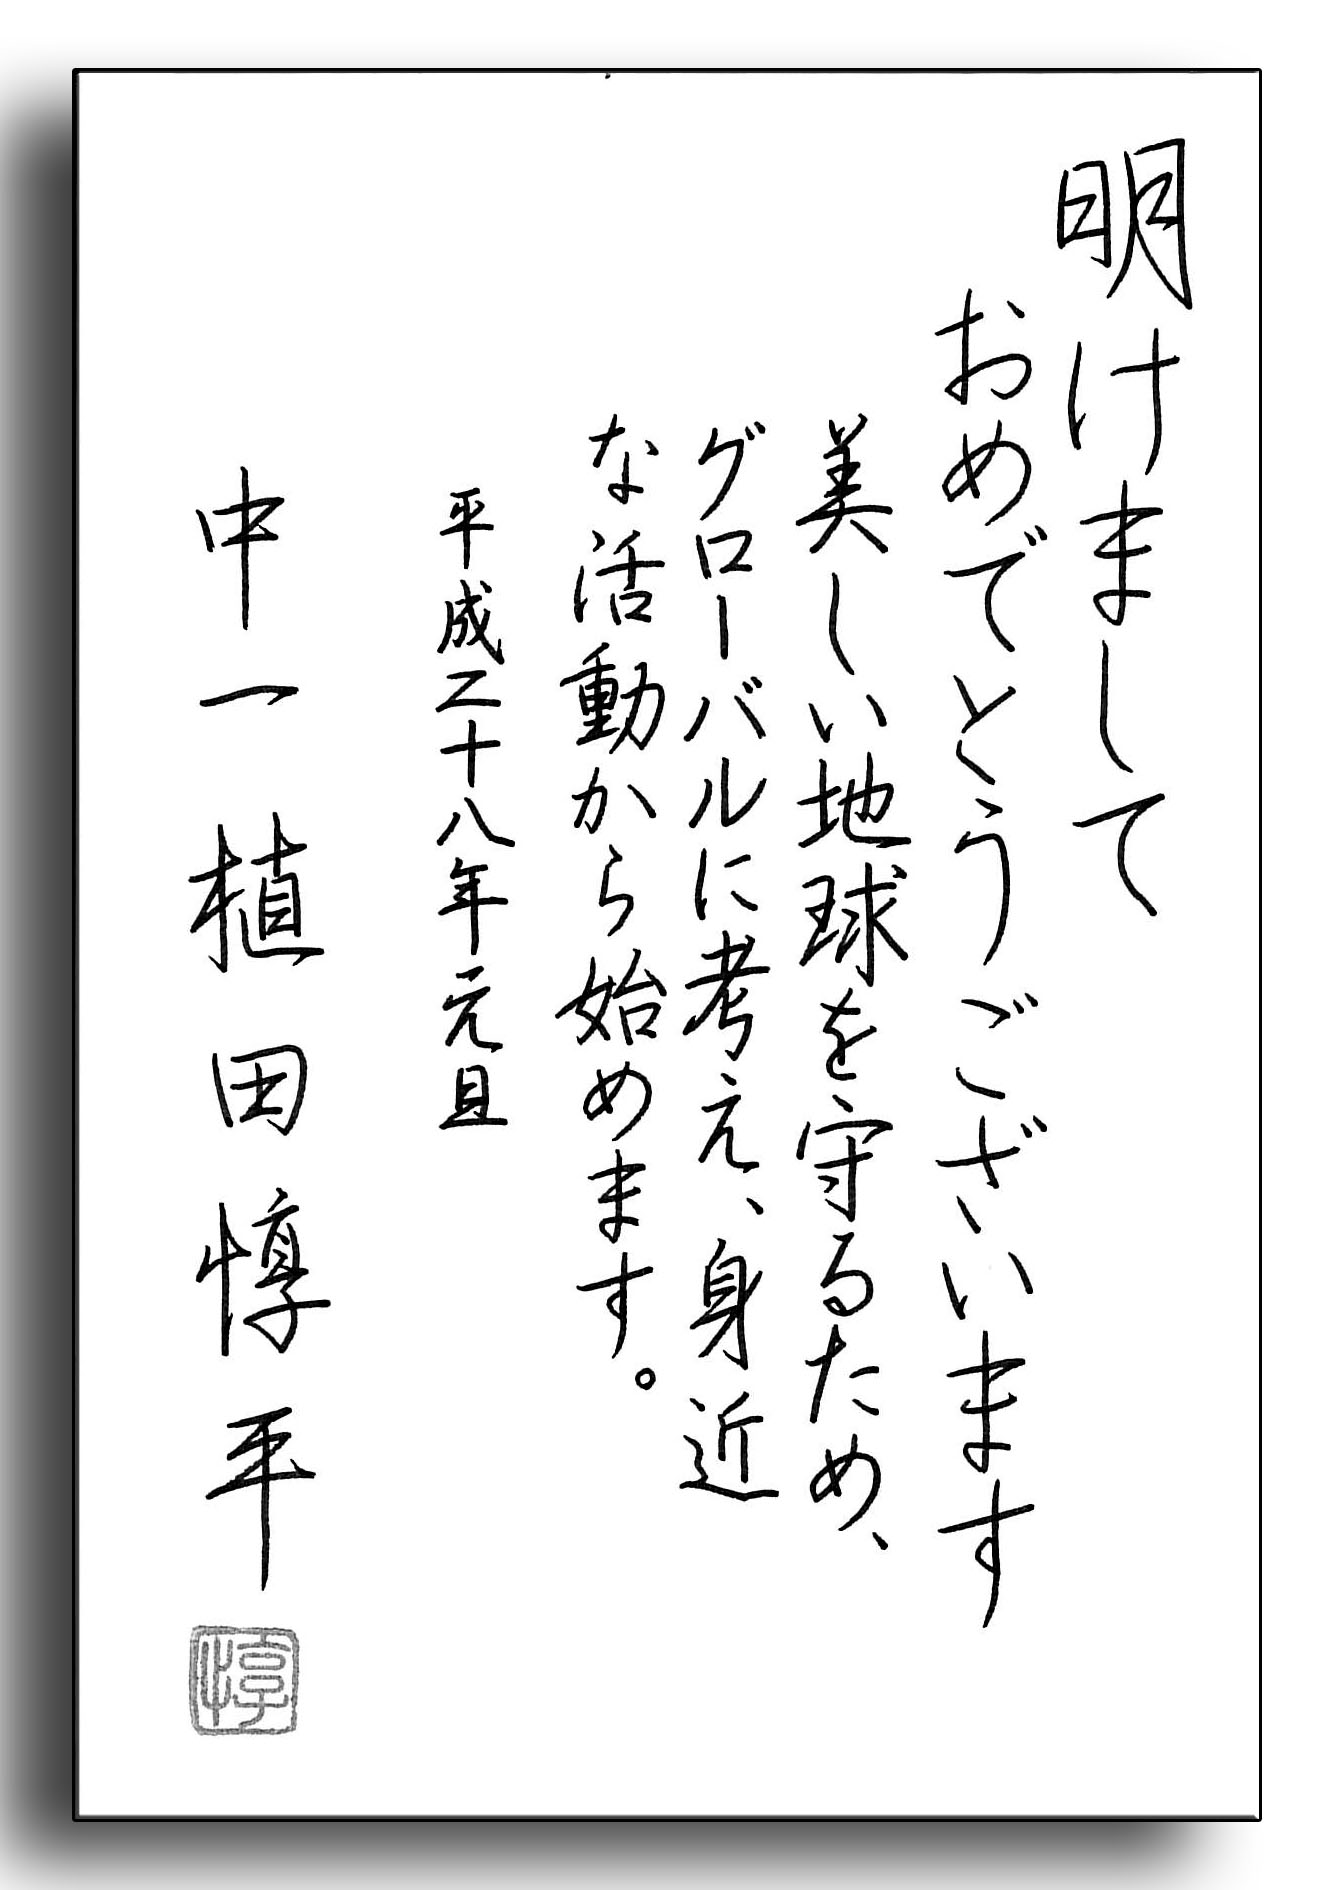 明けまして
おめでとうございます
美しい地球を守るため、
グローバルに考え、身近
な活動から始めます。
平成二十八年元旦
中一 植田惇平
惇